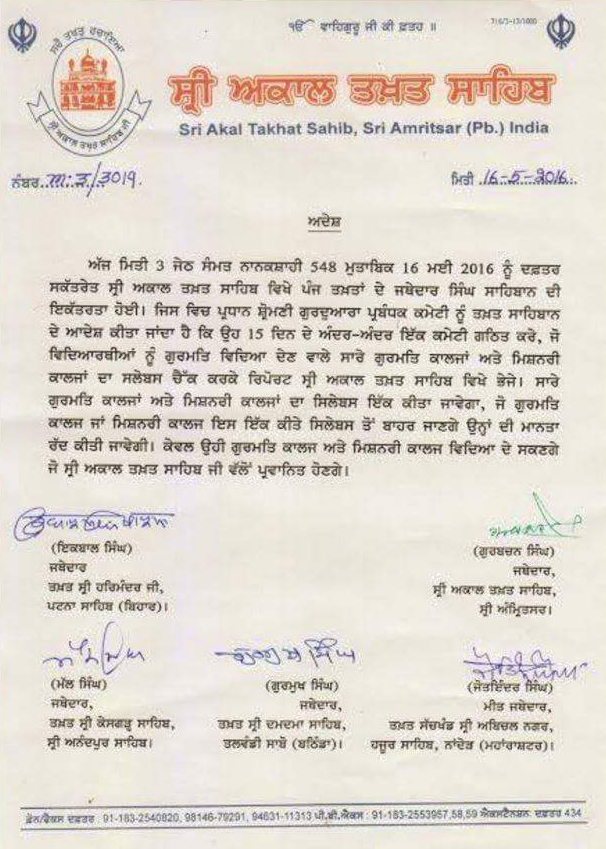 ੴ ਵਾਹਿਗੁਰੂ ਜੀ ਕੀ ਫ਼ਤਹ ॥
716/3-13/1000
ਸ੍ਰੀ ਅਕਾਲ ਤਖ਼ਤ ਸਾਹਿਬ ਜੀ
ਸ੍ਰੀ ਅਕਾਲ ਤਖ਼ਤ ਸਾਹਿਬ
Sri Akal Takhat Sahib, Sri Amritsar (Pb.) India
ਨੰਬਰ ਅ:ਤ/3019.
ਮਿਤੀ 16-5-2016
ਅਦੇਸ਼
ਅੱਜ ਮਿਤੀ 3 ਜੇਠ ਸੰਮਤ ਨਾਨਕਸ਼ਾਹੀ 548 ਮੁਤਾਬਿਕ 16 ਮਈ 2016 ਨੂੰ ਦਫ਼ਤਰ
ਸਕੱਤਰੇਤ ਸ੍ਰੀ ਅਕਾਲ ਤਖ਼ਤ ਸਾਹਿਬ ਵਿਖੇ ਪੰਜ ਤਖ਼ਤਾਂ ਦੇ ਜਥੇਦਾਰ ਸਿੰਘ ਸਾਹਿਬਾਨ ਦੀ
ਇਕੱਤਰਤਾ ਹੋਈ। ਜਿਸ ਵਿਚ ਪ੍ਰਧਾਨ ਸ਼੍ਰੋਮਣੀ ਗੁਰਦੁਆਰਾ ਪ੍ਰਬੰਧਕ ਕਮੇਟੀ ਨੂੰ ਤਖ਼ਤ ਸਾਹਿਬਾਨ
ਦੇ ਆਦੇਸ਼ ਕੀਤਾ ਜਾਂਦਾ ਹੈ ਕਿ ਉਹ 15 ਦਿਨ ਦੇ ਅੰਦਰ-ਅੰਦਰ ਇੱਕ ਕਮੇਟੀ ਗਠਿਤ ਕਰੇ, ਜੋ
ਵਿਦਿਆਰਥੀਆਂ ਨੂੰ ਗੁਰਮਤਿ ਵਿਦਿਆ ਦੇਣ ਵਾਲੇ ਸਾਰੇ ਗੁਰਮਤਿ ਕਾਲਜਾਂ ਅਤੇ ਮਿਸ਼ਨਰੀ
ਕਾਲਜਾਂ ਦਾ ਸਲੇਬਸ ਚੈੱਕ ਕਰਕੇ ਰਿਪੋਰਟ ਸ੍ਰੀ ਅਕਾਲ ਤਖ਼ਤ ਸਾਹਿਬ ਵਿਖੇ ਭੇਜੇ। ਸਾਰੇ
ਗੁਰਮਤਿ ਕਾਲਜਾਂ ਅਤੇ ਮਿਸ਼ਨਰੀ ਕਾਲਜਾਂ ਦਾ ਸਿਲੇਬਸ ਇੱਕ ਕੀਤਾ ਜਾਵੇਗਾ, ਜੋ ਗੁਰਮਤਿ
ਕਾਲਜ ਜਾਂ ਮਿਸ਼ਨਰੀ ਕਾਲਜ ਇਸ ਇੱਕ ਕੀਤੇ ਸਿਲੇਬਸ ਤੋਂ ਬਾਹਰ ਜਾਣਗੇ ਉਨ੍ਹਾਂ ਦੀ ਮਾਨਤਾ
ਰੱਦ ਕੀਤੀ ਜਾਵੇਗੀ। ਕੇਵਲ ਉਹੀ ਗੁਰਮਤਿ ਕਾਲਜ ਅਤੇ ਮਿਸ਼ਨਰੀ ਕਾਲਜ ਵਿਦਿਆ ਦੇ ਸਕਣਗੇ
ਜੋ ਸ੍ਰੀ ਅਕਾਲ ਤਖ਼ਤ ਸਾਹਿਬ ਜੀ ਵੱਲੋਂ ਪ੍ਰਵਾਨਿਤ ਹੋਣਗੇ।
(ਇਕਬਾਲ ਸਿੰਘ)
ਜਥੇਦਾਰ
ਤਖ਼ਤ ਸ੍ਰੀ ਹਰਿਮੰਦਰ ਜੀ,
ਪਟਨਾ ਸਾਹਿਬ (ਬਿਹਾਰ)।
(ਗੁਰਬਚਨ ਸਿੰਘ)
ਜਥੇਦਾਰ,
ਸ੍ਰੀ ਅਕਾਲ ਤਖ਼ਤ ਸਾਹਿਬ,
ਸ੍ਰੀ ਅੰਮ੍ਰਿਤਸਰ।
(ਮੱਲ ਸਿੰਘ)
ਜਥੇਦਾਰ,
ਤਖ਼ਤ ਸ੍ਰੀ ਕੇਸਗੜ੍ਹ ਸਾਹਿਬ,
ਸ੍ਰੀ ਅਨੰਦਪੁਰ ਸਾਹਿਬ।
ਗੁਰਮੁਖ ਸਿੰਘ
(ਗੁਰਮੁਖ ਸਿੰਘ)
ਜਥੇਦਾਰ,
ਤਖ਼ਤ ਸ੍ਰੀ ਦਮਦਮਾ ਸਾਹਿਬ,
ਤਲਵੰਡੀ ਸਾਬੋ (ਬਠਿੰਡਾ)।
(ਜੋਤਇੰਦਰ ਸਿੰਘ)
ਮੀਤ ਜਥੇਦਾਰ,
ਤਖ਼ਤ ਸੱਚਖੰਡ ਸ੍ਰੀ ਅਬਿਚਲ ਨਗਰ,
ਹਜ਼ੂਰ ਸਾਹਿਬ, ਨਾਂਦੇੜ (ਮਹਾਂਰਾਸ਼ਟਰ)।
ਫ਼ੋਨ/ਫੈਕਸ ਦਫ਼ਤਰ : 91-183-2540820, 98146-79291, 94631-11313 ਪੀ.ਬੀ.ਐਕਸ : 91-183-2553957,58,59 ਐਕਸਟੈਨਸ਼ਨ: ਦਫ਼ਤਰ 434